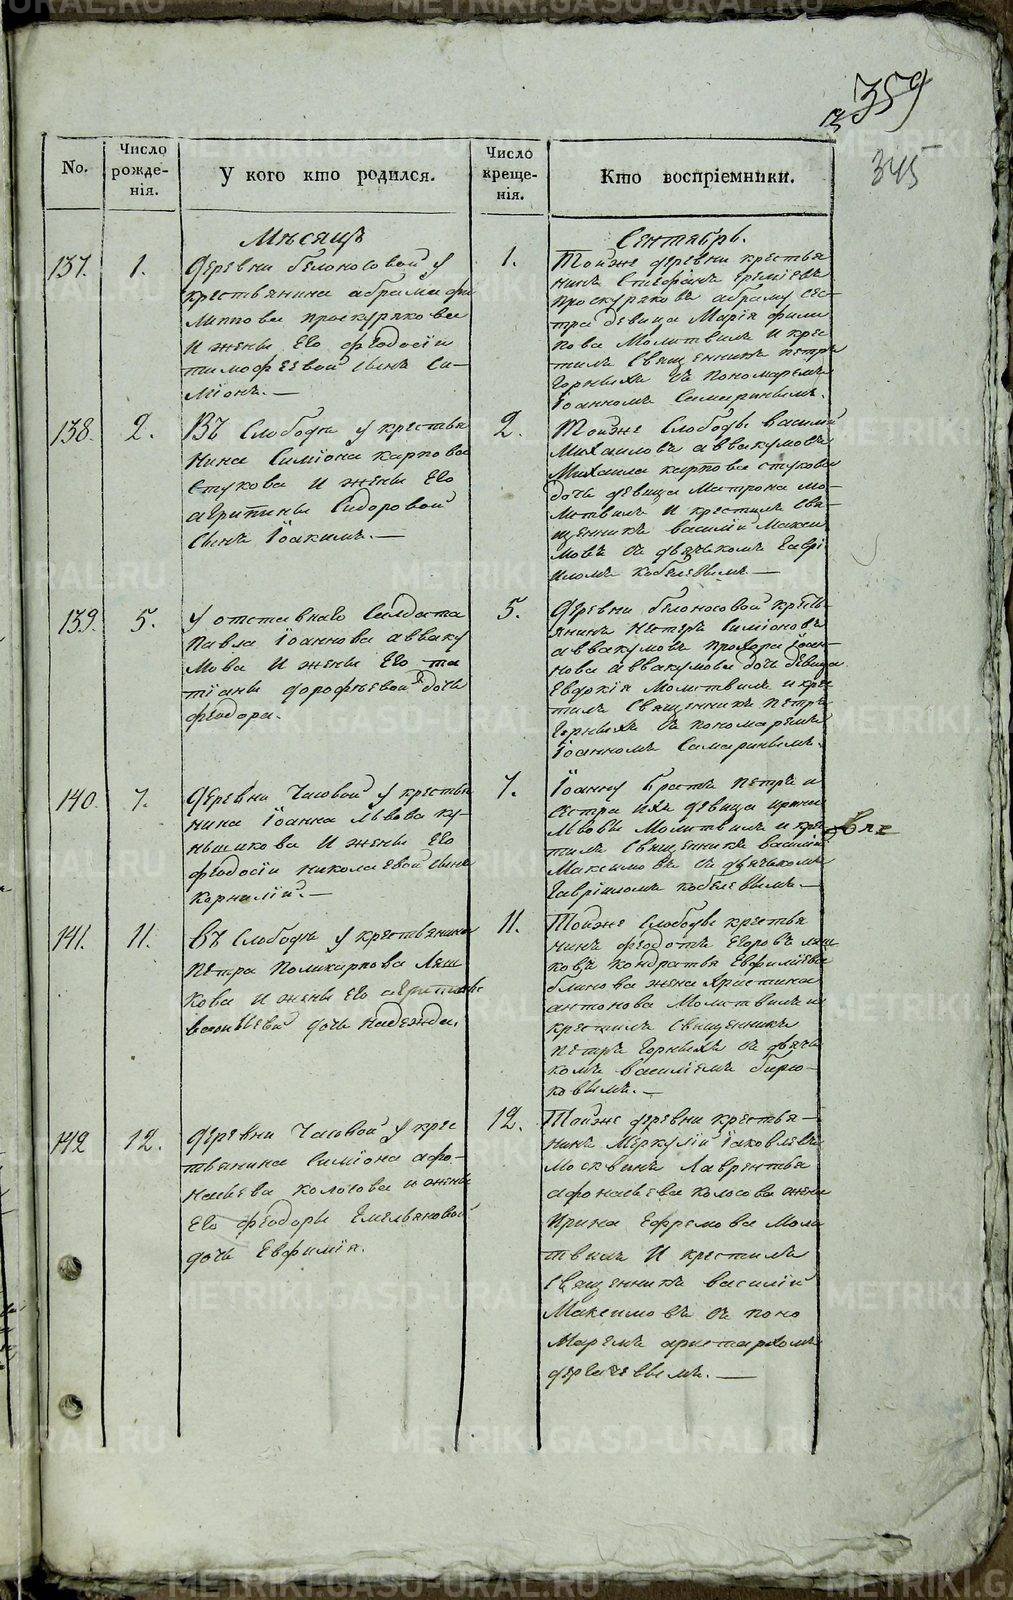 359
345
No.
Число рожде-
нія.
У кого кто родился.
Число креще-
нія.
Кто воспріемники.
Мѣсяцъ
Сентябрь.
137.
1.
Деревни белоносовой у
крестьянина абрама фи
липпова проскурякова
И жены Его феодосіи
тимофеевой сынъ Си-
міонъ.—
1.
Тойже деревни крестья
нинъ Стефанъ Еремѣевъ
проскуряковъ абраму сес-
тра девица Марія фили
пова Молитвилъ И крес
тилъ Священникъ петръ
Горныхъ съ Пономаремъ
Іоанномъ Самаринымъ.
138.
2.
Въ Слободѣ у крестья
нина Симіона карпова
Стукова И жены Его
агрипины Сидоровой
Сынъ Іоакимъ.—
2.
Тойже Слободы василій
Михаиловъ аввакумовъ
Михаила карпова стукова
дочь девица Матрона мо-
литвилъ И крестилъ свя-
щенникъ василій Макси
мовъ съ дьячькомъ Гаврі
иломъ кобелевымъ.—
139.
5.
У отставнаго Салдата
Павла Іоаннова авваку
Мова И жены Его та
тіаны дорофѣевой дочь
феодора.
5.
Деревни белоносовой кресть
янинъ Нестеръ Симіоновъ
аввакумовъ прохора Іоан-
нова аввакумова дочь девица
Молитвилъ и крес
тилъ Священникъ Петръ
Горныхъ съ пономаремъ
Іоанномъ Самаринымъ.
140.
7.
Деревни Часовой у крестья
нина Іоанна Львова ку-
ньшикова И жены Его
феодосіи николаевой сынъ
Корнилій.—
7.
Іоанну братъ петръ и
сестра ихъ девица ирина
Львовы Молитвилъ и крес
тилъ Священникъ василій
Максимовъ съ дьячькомъ
Гавріиломъ кобелевымъ.—
141.
11.
Въ Слободѣ у крестьянина
петра Поликарпова Ляш
кова И жены Его агрипины
васильевы дочь надежда.
11.
Тойже Слободы крестья
нинъ феодотъ Егоровъ ляш
ковъ кондратья Евфиміева
блинова жена Христина
антонова Молитвилъ и
крестилъ Священникъ
петръ Горныхъ съ дьячь
комъ василіемъ бирю-
ковымъ.—
142
12.
Деревни Часовой у крес
тьянина Симіона афо-
насьева колосова и жены
Его феодоры Емельяновой
дочь Евфимія.
12.
Тойже деревни крестья-
нинъ Меркулій Іаковлевъ
Москвинъ Лаврентья
афонасьева колосова жена
Ирина Ефремова Моли
твилъ И крестилъ
Священникъ василій
Максимовъ съ поно
Маремъ аристархомъ
METRIKI.GASO-URAL.RU